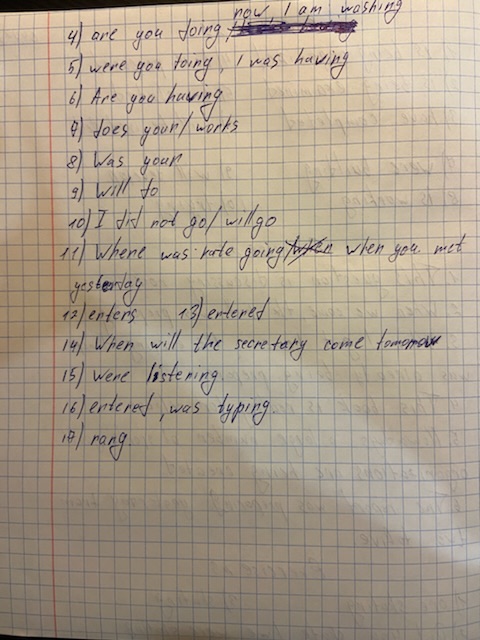 now I am washing
4) are you doing /
5) were you doing, I was having
6) Are you having
7) does your / works
8) Was your
9) Will do
10) I did not go / will go
11) Where was kate going / when you met
yesterday
12) enters 13) entered
14) When will the secretary come tomorrow
15) were listening
16) entered, was typing.
17) rang.